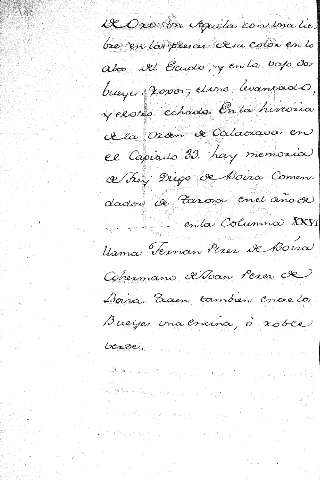 de Oro un Aguila con una lie
bre en las presas de su color en lo
alto del Escudo, y en lo vajo dos
bueyes roxos, el uno, levantado,
y el otro echado. En la historia
de la Orden de Calatrava en
el Capitulo 33 hay memoria
de Frey Diego de Boiza Comen
dador de Zarosa en el año de
en la Columna XXVI
llama Fernan Perez de Boiza
Cohermano de Joan Perez de
Boiza. Traen tambien entre los
Bueyes una encina, ó roble
verde.